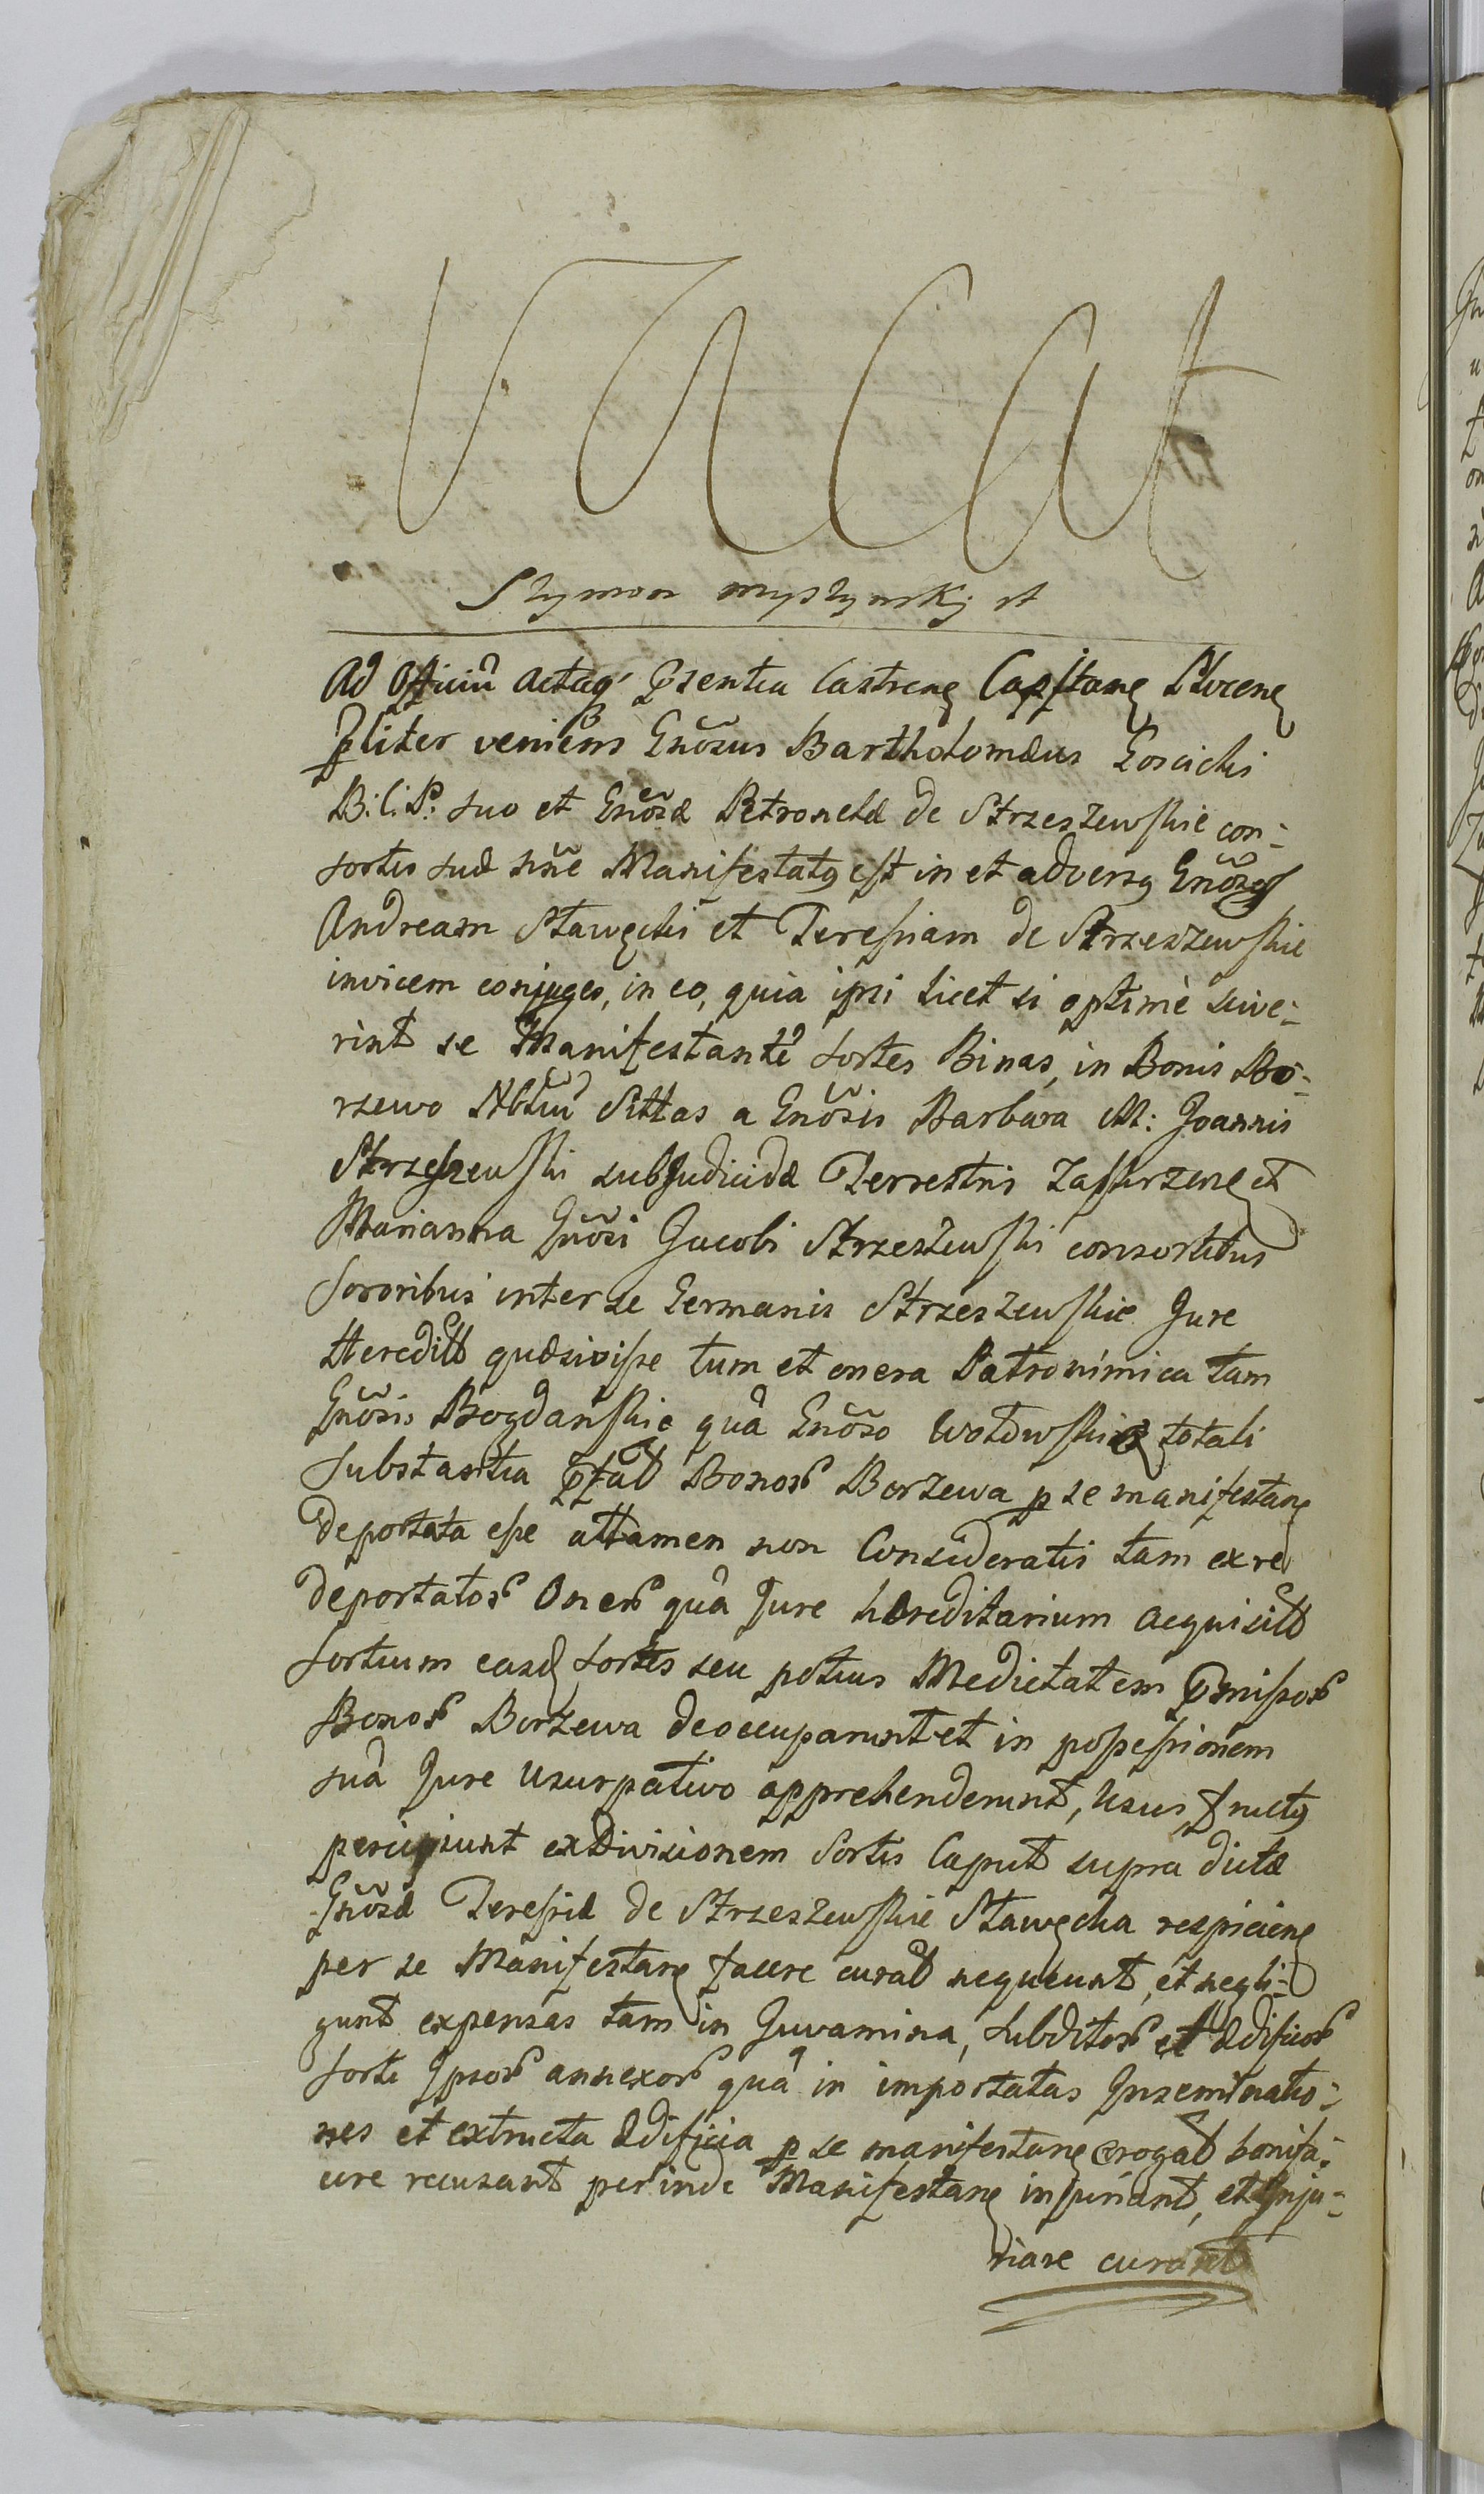 Vacat
Szymon myszynskj st
Ad Officiũ Actaq' Pzentia Castren Capitane Plocen
Pliter veniens Gnõsus Bartholomæus Goscicki
B: C: P: suo et Gnõsæ Petronelæ de Strzeszewskie con:
sortis suæ nñe Manifestatus est in et adversus Gnõsos
Andream Stawęcki et Teresiam de Strzeszewskie
invicem conjuges, in eo, quia ipsi licet si optimè scive:
rint se Manifestante sortes Binas, in Bonis Bo:
rzewo Sittas a Gnõsis Barbara M: Joannis
Strzeszewski subJudicidæ Terrestris Zaskrzene et
Marianna Gnõsi Jacobi Strzeszewski consortibus
Sororibus inter se Germanis Strzeszewskie Jure
Heredit quæsivisse tum et onera Patronimica tam
Gnõsis Bogdanskie quà Gnõso totali
substantia Pfat Bonor Borzewa p se manifestane
deportata esse attamen non Consideratis tam ex re
deportator Oner quà Jure hæreditarium acquisit
Sortium easd sortes seu potius Medietatem Pmissor
Bonor Borzewa deoccuparunt et in possessionem
suã Jure Usurpativo apprehenderunt, Usus, fructus
percipiunt exdivisionem Sortis Caput supra dictæ
Gnõsæ Teresiæ de Strzeszewskie Stawęcka respiciene
per se Manifestane facere curat nequeunt, et negli:
gunt expensas tam in Juvamina, Subditor et Ædificior
sorte Ipsor annexor quà in importatas Inseminatio:
nes et extructa Ædificia p se manifestane erogat bonifa:
cere recusant perinde Manifestane injuriant, et Inju:
riare curant